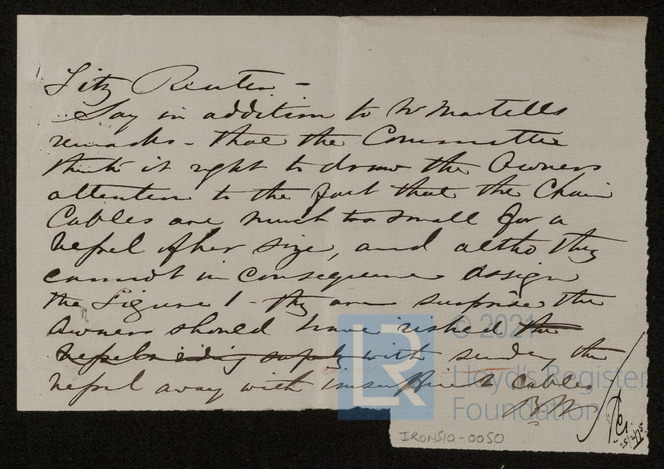 Fitz Reuter –
Say in addition to Mr Martells
remarks – that the Committee
think it right to draw the Owners
attention to the fact that the Chain
Cables are much too small for a
Vessel of her size, and altho they
cannot in consequence assign
the Figure 1 – they are surprise the
Owners should have risked the
Vessels riding safely with sending the
vessel away with insufficient Cables
© 2021
Lloyd's Register
Foundation
LR
IRONS10-0050